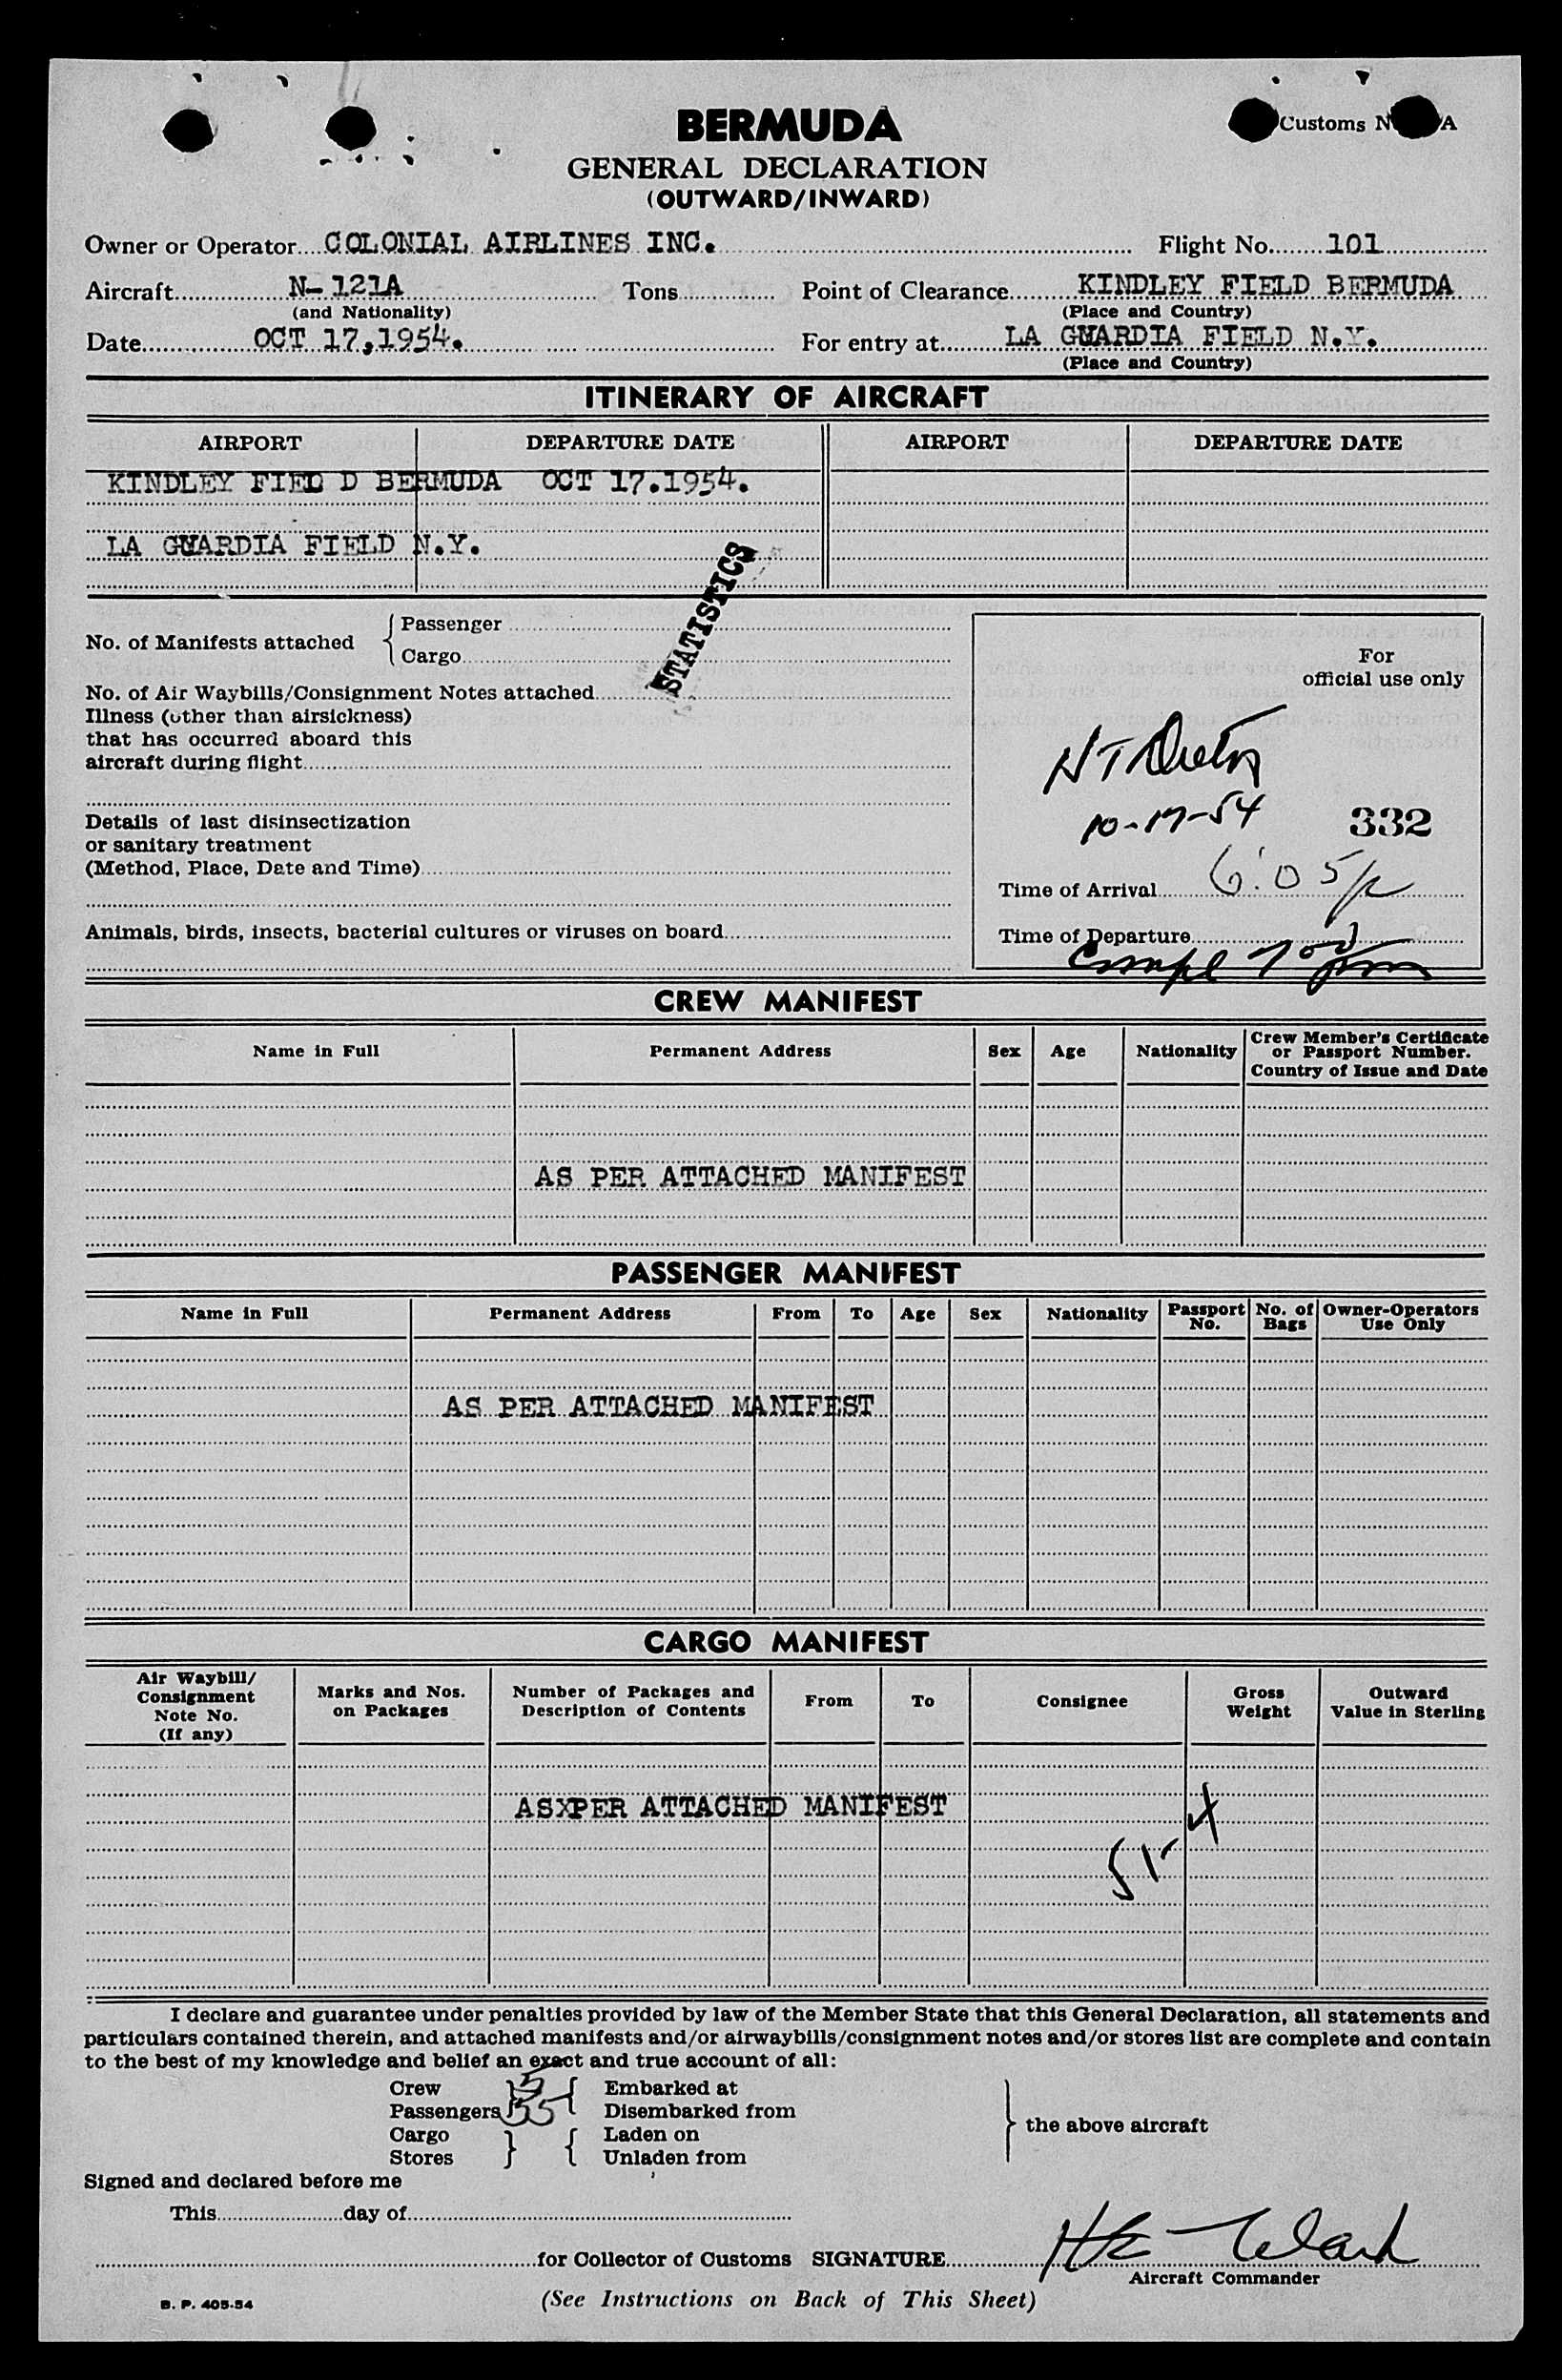 Customs N A
BERMUDA
GENERAL DECLARATION
(OUTWARD/INWARD)
Owner or Operator COLONIAL AIRLINES INC. Flight No. 101
Aircraft N-121A Tons Point of Clearance KINDLEY FIELD BERMUDA
(and Nationality) (Place and Country)
Date OCT 17,1954. For entry at LA GUARDIA FIELD N.Y.
(Place and Country)
ITINERARY OF AIRCRAFT
AIRPORT DEPARTURE DATE AIRPORT DEPARTURE DATE
KINDLEY FIEL D BERMUDA OCT 17.1954.
LA GUARDIA FIELD N.Y.
STATISTICS
No. of Manifests attached
Passenger
Cargo
No. of Air Waybills/Consignment Notes attached
Illness (other than airsickness)
that has occurred aboard this
aircraft during flight
Details of last disinsectization
or sanitary treatment
(Method, Place, Date and Time)
Animals, birds, insects, bacterial cultures or viruses on board
For
official use only
10-17-54 332
Time of Arrival 6:05p
Time of Departure
Compl 700 pm
CREW MANIFEST
Name in Full Permanent Address Sex Age Nationality Crew Member's Certificate
or Passport Number.
Country of Issue and Date
AS PER ATTACHED MANIFEST
PASSENGER MANIFEST
Name in Full Permanent Address From To Age Sex Nationality Passport No. No. of Bags Owner-Operators Use Only
AS PER ATTACHED MANIFEST
CARGO MANIFEST
Air Waybill/
Consignment
Note No.
(If any)
Marks and Nos.
on Packages
Number of Packages and
Description of Contents
From To Consignee
Gross
Weight
Outward
Value in Sterling
ASXPER ATTACHED MANIFEST
I declare and guarantee under penalties provided by law of the Member State that this General Declaration, all statements and
particulars contained therein, and attached manifests and/or airwaybills/consignment notes and/or stores list are complete and contain
to the best of my knowledge and belief an exact and true account of all:
Crew 5 Embarked at
Passengers 55 Disembarked from
Cargo Laden on
Stores Unladen from
the above aircraft
Signed and declared before me
This day of
for Collector of Customs SIGNATURE
Aircraft Commander
(See Instructions on Back of This Sheet)
B. P. 405-54